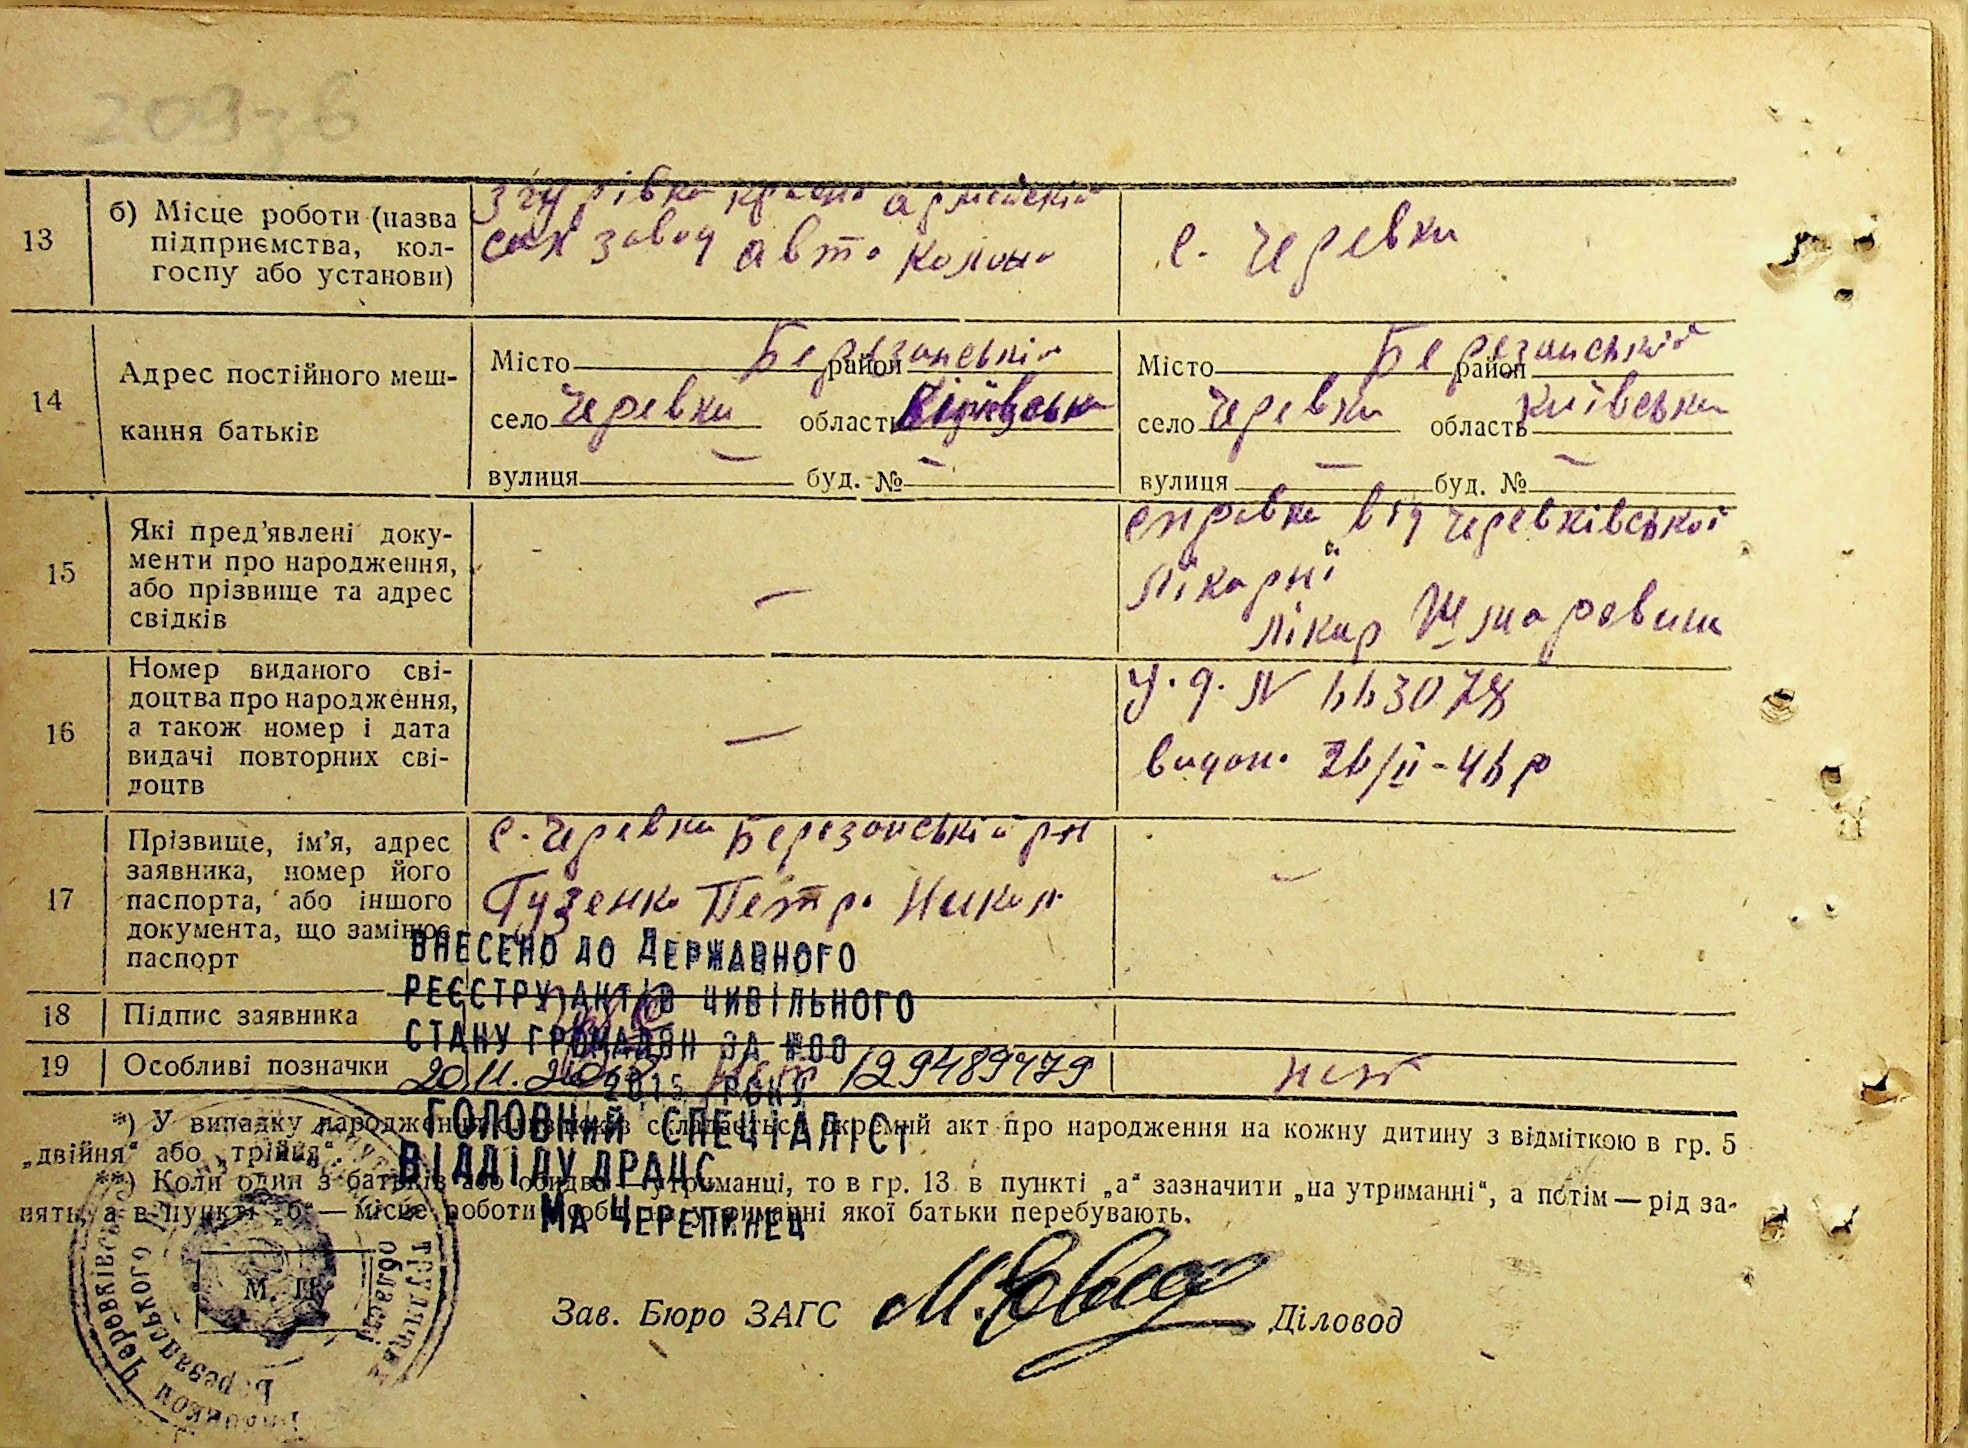 209 зв
13
б) Місце роботи (назва
підприємства, кол-
госпу або установи)
Згурівка красно армейскій
сах завод авто колона
с. Черевки
14
Адрес постійного меш-
кання батьків
Місто Березанській район
село Черевки область Київська
вулиця — буд. № —
Місто Березанській район
село Черевки область Київська
вулиця — буд. № —
15
Які пред’явлені доку-
менти про народження,
або прізвище та адрес
свідків
—
справка від Черевківської
лікарні
лікар
16
Номер виданого сві-
доцтва про народження,
а також номер і дата
видачі повторних сві-
доцтв
—
У. д. N 663078
видано 26/II-46 р
17
Прізвище, ім’я, адрес
заявника, номер його
паспорта, або іншого
документа, що замінює
паспорт
с. Черевки Березанській р-н
Гузенко Петро Никол
—
18
Підпис заявника
19
Особливі позначки
нет
ВНЕСЕНО ДО ДЕРЖАВНОГО
РЕЄСТРУ АКТІВ ЦИВІЛЬНОГО
СТАНУ ГРОМАДЯН ЗА №00
129489479
2015 РОКУ
ГОЛОВНИЙ СПЕЦІАЛІСТ
ВІДДІЛУ ДРАЦС
МА ЧЕРЕПИНЕЦ
*) У випадку народження близнюків складається окремий акт про народження на кожну дитину з відміткою в гр. 5
„двійня“ або „трійня“.
**) Коли один з батьків або обидва — утриманці, то в гр. 13 в пункті „а“ зазначити „на утриманні“, а потім — рід за-
нять, а в пункті „б“ — місце роботи особи на утриманні якої батьки перебувають.
М. П.
Зав. Бюро ЗАГС
Діловод